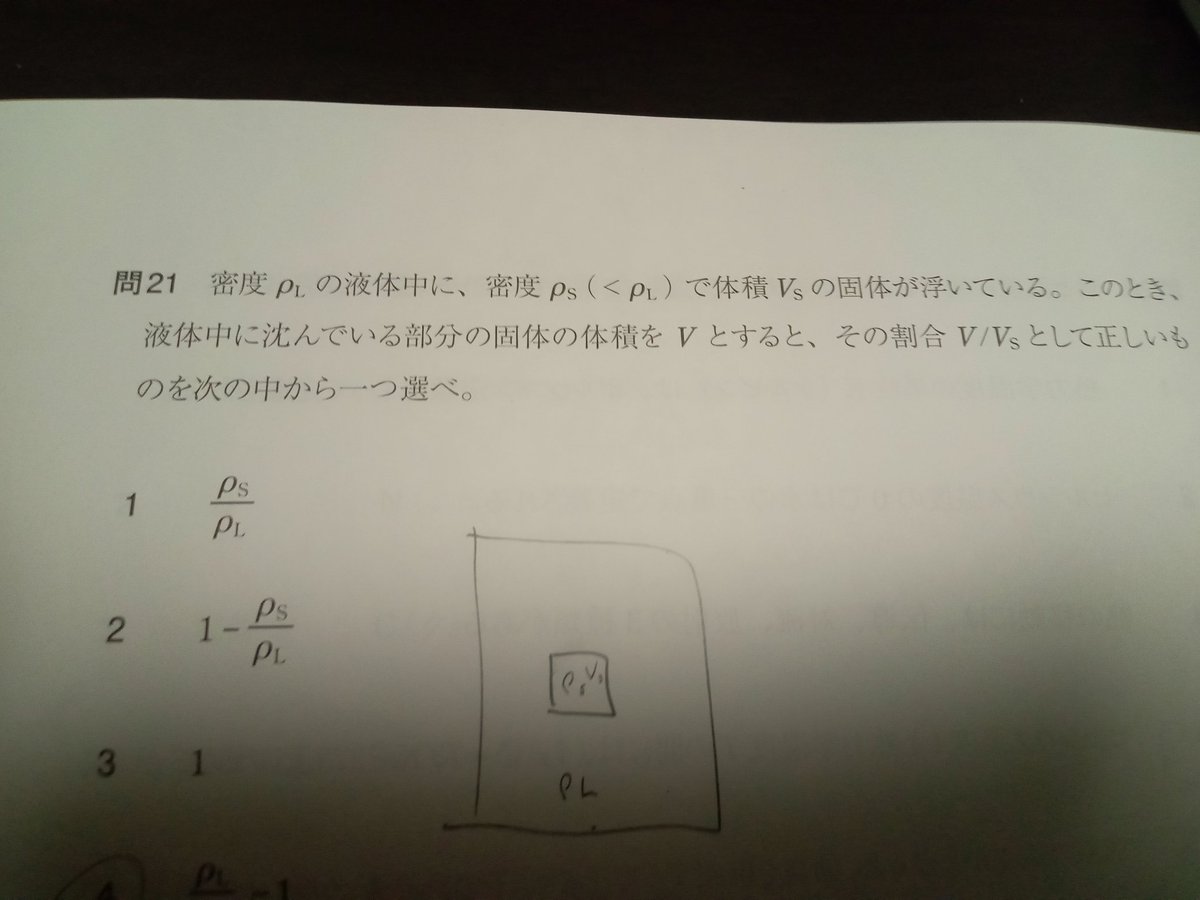 問21 密度 ρL の液体中に、密度 ρS (< ρL) で体積 VS の固体が浮いている。このとき、
液体中に沈んでいる部分の固体の体積を V とすると、その割合 V/VS として正しいも
のを次の中から一つ選べ。
1 ρS/ρL
2 1 − ρS/ρL
3 1
ρs Vs
ρL
4 ρL
−1